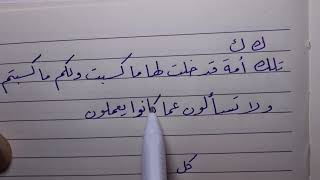 ك ك
تلك أمة قد خلت لها ما كسبت ولكم ما كسبتم
ولا تسألون عما كانوا يعملون
كل